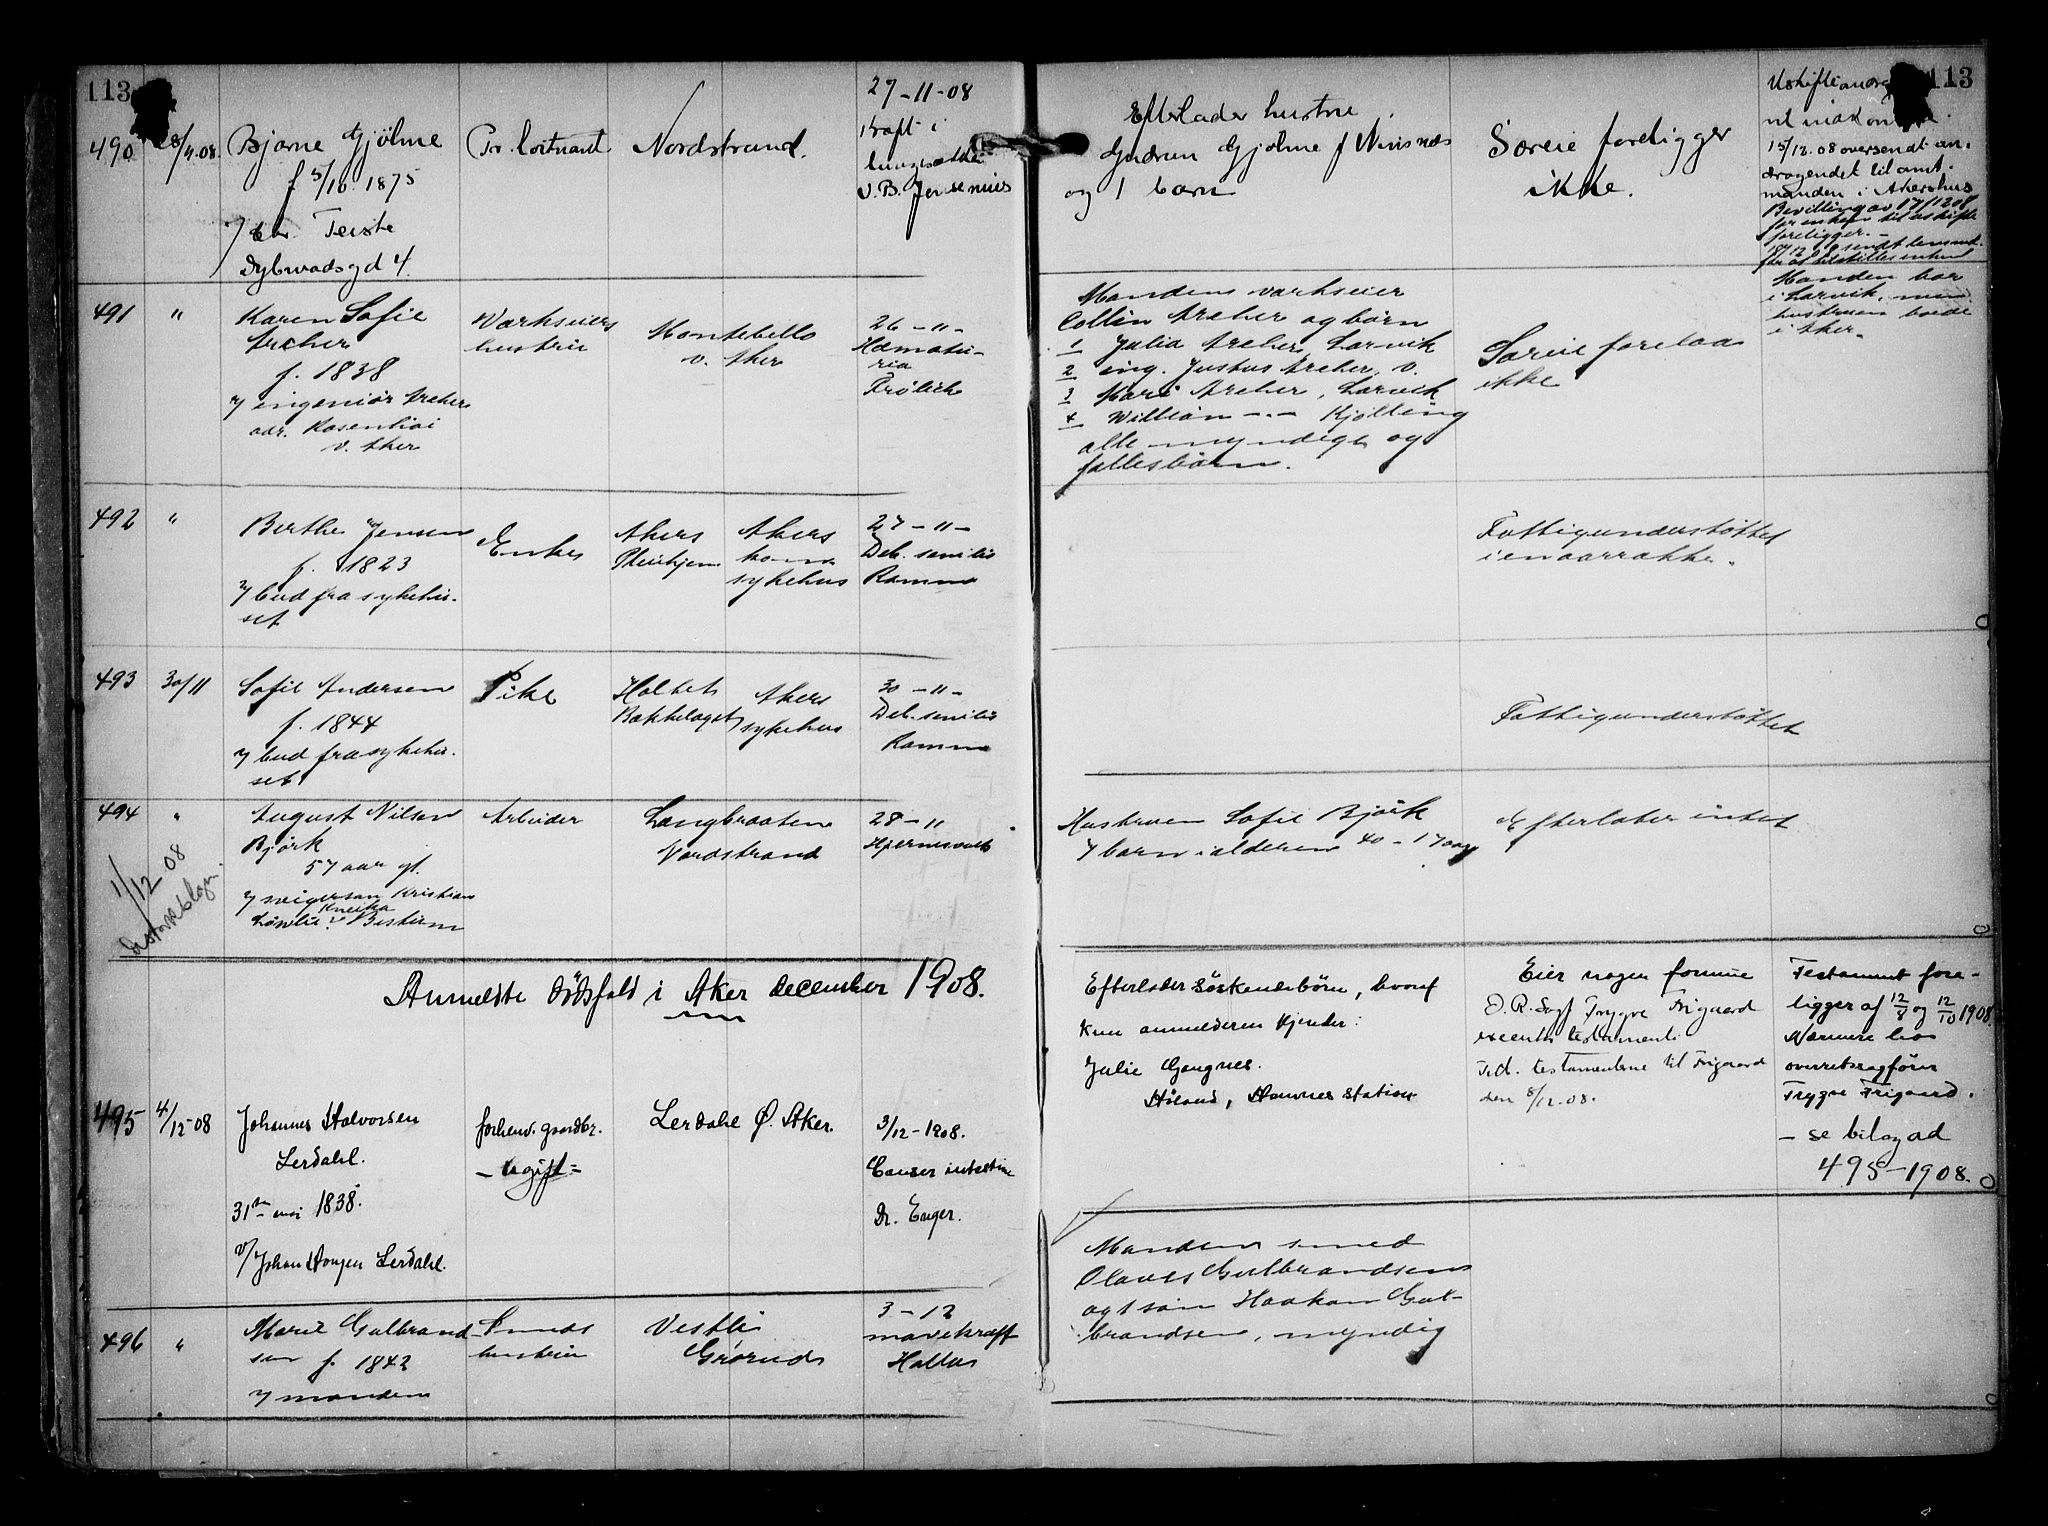 113
113
490
28/11.08.
Bjarne Gjölme
f 5/10. 1875
v/ Chr. Teiste
Dybwadsgd 4.
Pr. löitnant
Nordstrand.
27-11-08
Kræft i
J.B. Jensenius
Efterlader hustru
Gudrun Gjölme f Nirisnæs
og 1 barn
Særeie foreligger
ikke.
15/12.08 oversendt an-
dragendet til amt-
manden i Akershus
Bevilling av 17/12 08
for enken til uskifte
foreligger.-
491
"
Karen Sofie
Archer
f. 1838
v/ ingeniör Archer
adr. Rosenhöi
v. Aker
Værkseiers
hustru
Montebello
v. Aker
26-11-
Hæmatu-
ria
Frölich
Manden værkseier
Collin Archer og börn
1 Julia Archer, Larvik
2 ing. Justus Archer, v.
3 Mari Archer, Larvik
4 William -"- Kjölling
alle myndige og
fællesbörn.
Særeie forelaa
ikke
Manden bor
i Larvik, men
hustruen boede
i Aker.
492
"
Berthe Jensen
f. 1823
v/ bud fra sykehu-
set
Enke
Akers
Pleiehjem
Akers
kom.
sykehus
27-11-
Deb. senilis
Ramm
Fattigunderstöttet
i en aarrække.
493
30/11
Sofie Andersen
f. 1844
v/ bud fra sykehu-
set
Pike
Holtet
Bækkelaget
Akers
sykehus
30-11-
Deb. senilis
Ramm
Fattigunderstöttet
494
"
August Nilsen
Björk
57 aar gl.
v/ svigersön Kristian
Arbeider
Langbraaten
Nordstrand
28-11
Hustruen Sofie Björk
7 barn i alderen 40-17 aar
Efterlater intet
1/12 08
Anmeldte dödsfald i Aker december 1908.
495
4/12-08
Johannes Halvorsen
Lerdahl.
31te mai 1838.
v/ Johan Haugen Lerdahl.
forhenv. gaardbr.
- ugift -
Lerdahl Ø. Aker.
3/12-1908.
Cancer intestine
Dr. Enger.
Efterlader söskendebörn, hvoraf
kun anmelderen kjender:
Julie Gangnes.
Höland, Hemnes station
Eier nogen formue
O.R.Sagf Trygve Frigaard
executor testamenti.
Tid. testamenterne til Frigaard
den 8/12.08.
Testament fore-
ligger af 12/8 og 12/10 1908.
Nærmere hos
overretssagförer
Trygve Frigaard.
- se bilag ad
495-1908.
496
"
Marie Gulbrand-
sen f. 1842
v/ manden
Smeds
hustru
Vestli
Grorud
3-12
mavekræft
Hallus
Manden smed
Olaves Gulbrandsen
og 1 sön Haakon Gul-
brandsen, myndig